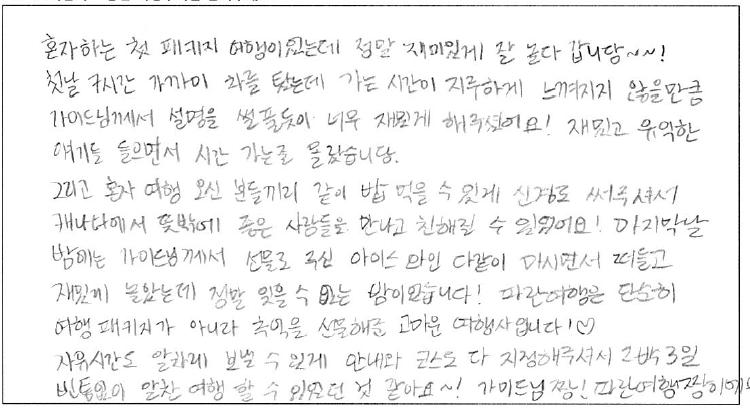 혼자하는 첫 패키지 여행이었는데 정말 재미있게 잘 놀다 갑니당~~!
첫날 7시간 가까이 차를 탔는데 가는 시간이 지루하게 느껴지지 않을만큼
가이드님께서 설명을 썰풀듯이 너무 재밌게 해주셨어요! 재밌고 유익한
얘기들 들으면서 시간 가는줄 몰랐습니당.
그리고 혼자 여행 오신 분들끼리 같이 밥 먹을 수 있게 신경도 써주셔서
캐나다에서 뜻밖에 좋은 사람들을 만나고 친해질 수 있었어요! 마지막날
밤에는 가이드님께서 선물로 주신 아이스 와인 다같이 마시면서 떠들고
재밌게 놀았는데 정말 잊을 수 없는 밤이었습니다! 파란여행은 단순히
여행 패키지가 아니라 추억을 선물해준 고마운 여행사입니다!♡
자유시간도 알차게 보낼 수 있게 안내와 코스도 다 지정해주셔서 2박 3일
빈틈없이 알찬 여행 할 수 있었던 것 같아요~! 가이드님 짱! 파란여행 짱이에요